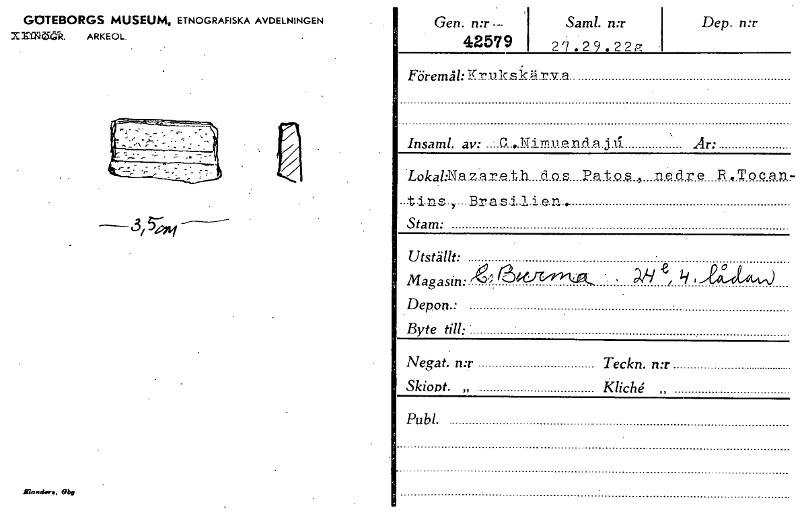 GÖTEBORGS MUSEUM, ETNOGRAFISKA AVDELNINGEN
ETNOGR. ARKEOL.
3,5 cm
Elanders, Gbg
Gen. n:r Saml. n:r Dep. n:r
42579 27.29.22g
Föremål: Krukskärva
Insaml. av: C.Nimuendajú År:
Lokal: Nazareth dos Patos, nedre R.Tocan-
tins, Brasilien.
Stam:
Utställt:
Magasin: C. Burma . 24e, 4. lådan
Depon.:
Byte till:
Negat. n:r Teckn. n:r
Skiopt. „ Kliché „
Publ.